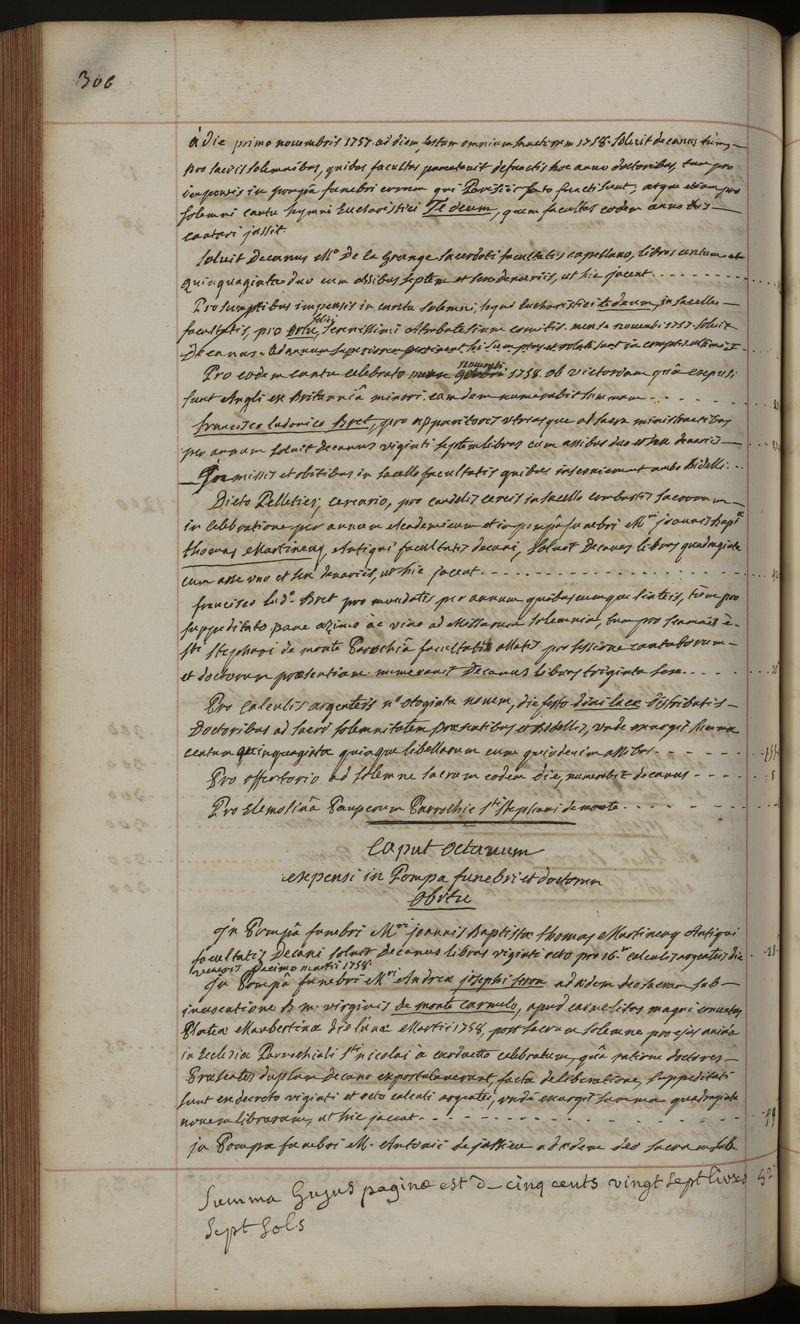 306
à die primo novembris 1757 ad diem festum omnium sanctorum 1758. Solvit decanus tum
pro sacris solemnibus, quibus facultas parentavit defunctis hoc anno doctoribus, tum pro
impensis in pompâ funebri eorum qui Parisiis fato functi sunt, atque etiam pro
solemni cantu hymni Eucharistici Te deum, quem facultas eodem anno
cantari jussit.
Solvit Decanus Mo. De la Grange sacerdoti facultatis capellano, libras centum et
quinquaginta duo cum assibus septem et sex denariis, ut hic jacent
Pro sumptibus impensis in cantu solemni, hymni Eucharistici te deum in sacello
facultatis, pro ortu felici Serenissimi Atrebatensium comitis, mense novembri 1757. Solvit
Decanus. ad annum superiorem pertinent hi sumptus et relati sunt in computo ultimo
Pro eodem cantu celebrato novembri 1758. ob victoriam quâ expulsi
sunt Angli ex Britanniâ minori eamdem numeravit summam
francisco Ludovico Bret, pro apparitoris utriusque ad sacra ministrantibus
per annum solvit decanus viginti septem libras cum assibus duo et sex denariis
Pro missis et obitibus in sacello facultatis quibus ambo Bidelli
Dicto Pelletier, cerario, pro candelis cereis in sacello combustis sacrorum
in celebratione per annum Academicum et in pompâ funebri Mri joannis Bapt.
thomas Martinenq, Antiqui facultatis decani, Solvit Decanus libras quadraginta
cum asse uno et sex denariis, ut hic jacent
francisco Lud.o Bret pro mundatis per annum quibuscumque linteis, tum pro
suppeditato pane azimo ac vino ad Missarum solemnia, tum pro scamnis è
Sti Stephani de monte Parochiâ facultati allatis pro sessione cantatorum
et doctorum praesentium numeravit Decanus libras triginta sex
Pro calculis argenteis no. octoginta novem, die festo divi Lucae distributis
Doctoribus ad sacri solemnitatem praesentibus et Bidellis, unde exurgit summa
centum quinquaginta quinque libellarum cum quindecim assibus 155
Pro offertorio ad solemne sacrum eodem die, numeravit decanus 8
Pro Elemosinâ Pauperum Parrochiae Sti Stephani de monte
Caput octavum
expensi in Pompa funebri et doctorum
obitu
In Pompâ funebri Mri joannis Baptistae thomas Martinenq Antiqui
facultatis Decani solvit decanus libras viginti octo pro 16. calculis argenteis die 28
veneris Decimo martii 1758
In Pompâ funebri Mri Andreae josephi ad aedem deo sacram sub
invocatione B. M. virginis de monte carmelo, apud carmelitas magni conventus
Plateae Maubertinae die lunae Martii 1758, post sacrum solemne pro ejus animâ
in Ecclesiâ Parrochiali Sti nicolai à cardueto celebratum, quâ ratione doctores
Praesentes duplum decano expostulaverunt, factâ deliberatione, suppeditati
sunt ex decreto viginti et octo calculi argentei, unde exurgit summa quadraginta
novem librarum, ut hic jacent 49
in Pompâ funebri M. Antonii de jussieu ad aedem deo sacram sub
Summa hujus paginae est de cinq cents vingt sept livres
Sept sols